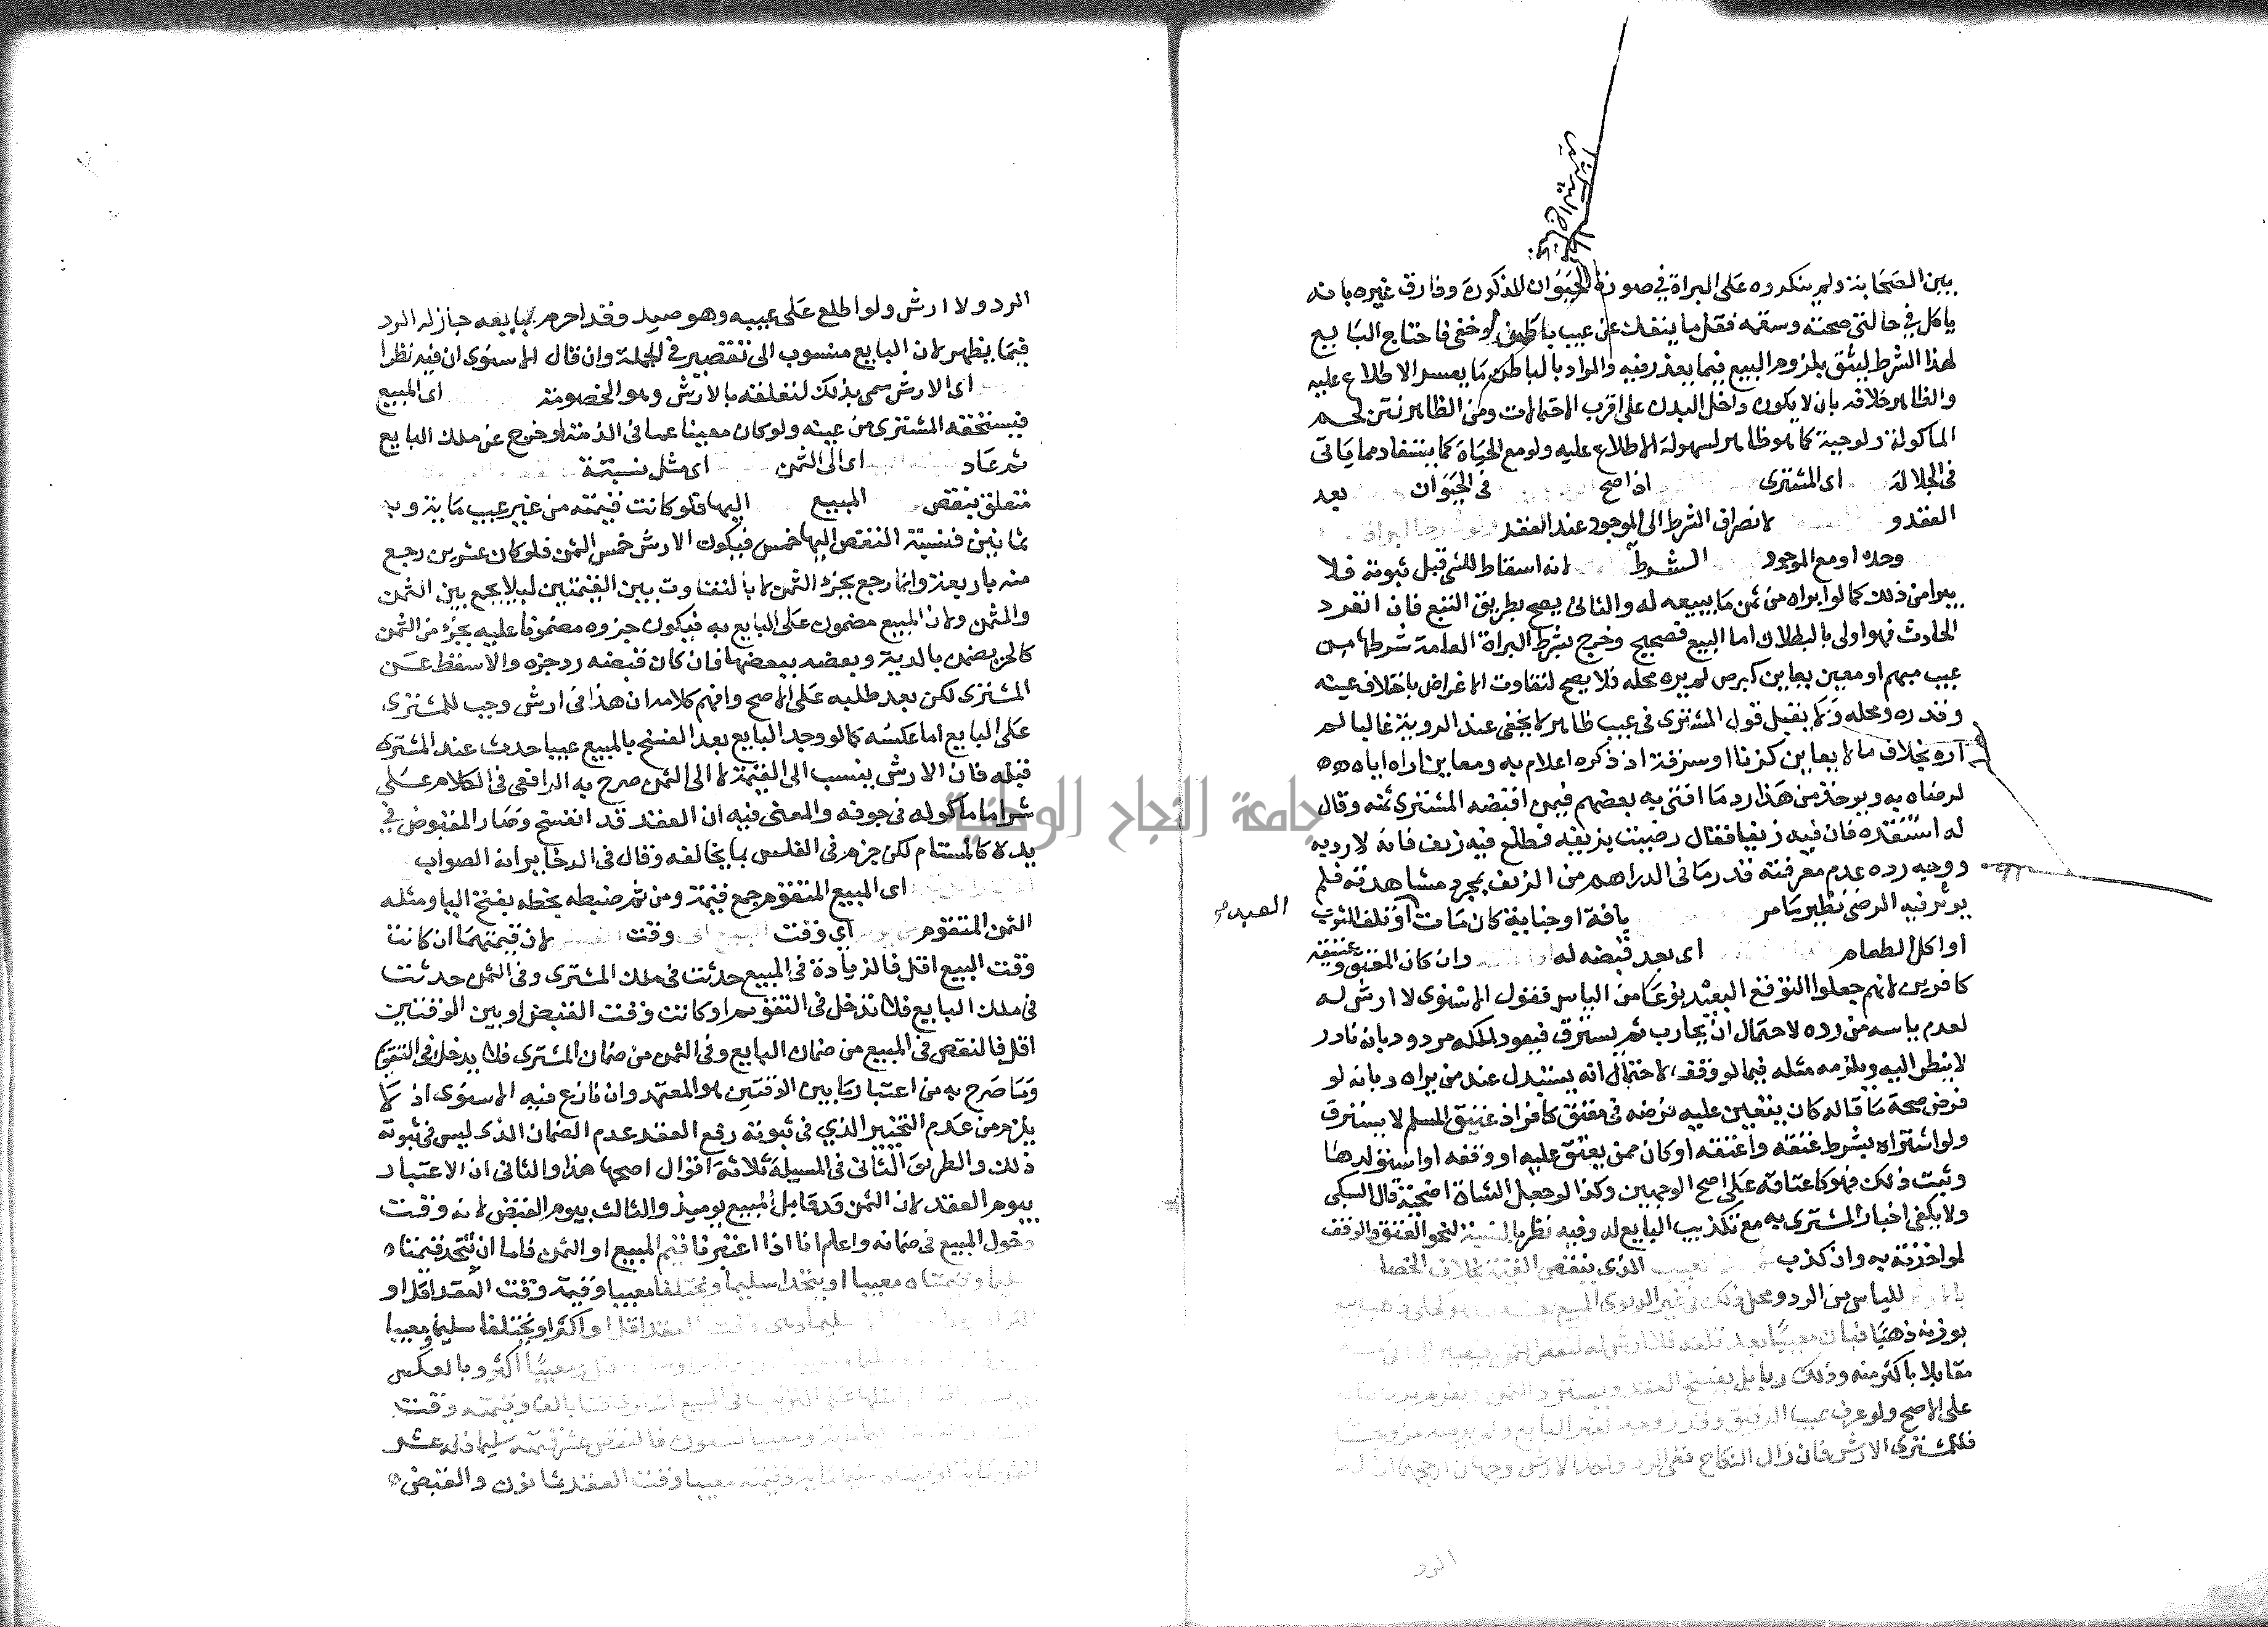 بين الصحابة ولم ينكروه على البراة في صورة الحيوان المذكورة وفارق غيره بانه
ياكل في حالتي صحته وسقمه فقل ما ينفك عن عيب باطن او خفي فاحتاج البايع
لهذا الشرط ليثق بلزوم البيع فيما يعذر فيه والمراد بالباطن ما يعسر الاطلاع عليه
والظاهر خلافه بان لا يكون داخل البدن على اقرب الاحتمالات ومن الظاهر نتن لحم
الماكولة ولو حية كما هو ظاهر لسهولة الاطلاع عليه ولو مع الحياة كما يستفاد مما ياتي
في الجلالة اى المشترى اذا صح في الحيوان بعد
العقد و لانصراف الشرط الى الموجود عند العقد
وحده او مع الموجود الشرط لانه اسقاط للشى قبل ثبوته فلا
يبرا من ذلك كما لو ابراه من ثمن ما يبيعه له والثانى يصح بطريق التبع فان انفرد
الحادث فهو اولى بالبطلان اما البيع فصحيح وخرج بشرط البراة العامة شرطها من
عيب مبهم او معين يعاين كبرص لم يره محله فلا يصح لتفاوت الاغراض باختلاف عينه
وقدره ومحله ولا يقبل قول المشترى في عيب ظاهر لا يخفى عند الروية غالبا لم
اره بخلاف ما لا يعاين كزنا او سرقة اذ ذكره اعلام به ومعاين اراه اياه
لرضاه به ويوخذ من هذا رد ما افتى به بعضهم فيمن اقبضه المشترى ثمنه وقال
له استنقده فان فيه زيفا فقال رضيت بزيفه فطلع فيه زيف فانه لا رد به
ووجه رده عدم معرفته قدر ما في الدراهم من الزيف بمجرد مشاهدته فلم
يوثر فيه الرضى نظير ما مر بافة او جناية كان مات او تلف الثوب
العبد
او اكل الطعام اى بعد قبضه له وان كان المعتق وعتيقه
كافرين لانهم جعلوا التوقع البعيد نوعا من الياس فقول الاسنوى لا ارش له
لعدم ياسه من رده لاحتمال ان يحارب ثم يسترق فيعود لملكه مردود بانه نادر
لا ينظر اليه ويلزمه مثله فيما لو وقفه لاحتمال انه يستبدل عند من يراه وبانه لو
فرض صحة ما قاله كان يتعين عليه فرضه في معتق كافر اذ عتيق المسلم لا يسترق
ولو اشتراه بشرط عتقه واعتقه او كان ممن يعتق عليه او وقفه او استولدها
وثبت ذلك فهو كاعتاقه على اصح الوجهين وكذا لو جعل الشاة اضحية قال السبكى
ولا يكفى اخبار المشترى به مع تكذيب البايع له وفيه نظر بالنسبة لنحو العتق والوقف
لمواخذته به وان كذب بعيب الذى ينقص القيمة بخلاف الخصا
لليأس من الرد ومحل ذلك في غير الربوى المبيع
بوزنه ذهبا فبان معيبا بعد تلفه فلا ارش له لنقص الثمن فيصير الباقى منه
مقابلا باكثر منه وذلك ربا بل يفسخ العقد ويسترد الثمن ويغرم بدل التالف
على الاصح ولو عرف عيب الرقيق وقد زوجه لغير البايع ولم يرضه مزوجا
فللمشترى الارش فان زال النكاح ففى الرد واخذ الارش وجهان ارجحهما ان له
الرد
الرد ولا ارش ولو اطلع على عيبه وهو صيد وقد احرم بايعه جاز له الرد
فيما يظهر لان البايع منسوب الى تقصير في الجملة وان قال الاسنوى ان فيه نظرا
اى الارش سمى بذلك لتعلقه بالارش وهو الخصومة اى المبيع
فيستحقه المشترى من عينه ولو كان معينا عما في الذمة او خرج عن ملك البايع
ثم عاد اى الى الثمن اى مثل نسبة
متعلق بنقص المبيع اليها فلو كانت قيمته من غير عيب ماية وبه
ثمانين فنسبة النقص اليها خمس فيكون الارش خمس الثمن فلو كان عشرين رجع
منه باربعة وانما رجع بجزء الثمن لا بالتفاوت بين القيمتين ليلا يجمع بين الثمن
والمثمن ولان المبيع مضمون على البايع به فيكون جزوه مضمونا عليه بجزء من الثمن
كالحر يضمن بالدية وبعضه ببعضها فان كان قبضه رد جزه والا سقط عن
المشترى لكن بعد طلبه على الاصح وافهم كلامه ان هذا في ارش وجب للمشترى
على البايع اما عكسه كما لو وجد البايع بعد الفسخ بالمبيع عيبا حدث عند المشترى
قبله فان الارش ينسب الى القيمة لا الى الثمن صرح به الرافعى في الكلام على
شرا ما ماكوله في جوفه والمعنى فيه ان العقد قد انفسخ وصار المقبوض في
يده كالمستام لكن جزم في الفلس بما يخالفه وقال في الدخاير انه الصواب
اى المبيع المتقوم جمع قيمة ومن ثم ضبطه بخطه بفتح اليا ومثله
الثمن المتقوم اي وقت البيع الى وقت القبض لان قيمتهما ان كانت
وقت البيع اقل فالزيادة في المبيع حدثت في ملك المشترى وفي الثمن حدثت
في ملك البايع فلا تدخل في التقويم او كانت وقت القبض او بين الوقتين
اقل فالنقص في المبيع من ضمان البايع وفي الثمن من ضمان المشترى فلا يدخل في التقويم
وما صرح به من اعتبار ما بين الوقتين هو المعتمد وان نازع فيه الاسنوى اذ لا
يلزم من عدم التخيير الذي في ثبوته رفع العقد عدم الضمان الذى ليس في ثبوته
ذلك والطريق الثانى في المسيلة ثلاثة اقوال اصحها هذا والثانى ان الاعتبار
بيوم العقد لان الثمن قد قابل المبيع يوميذ والثالث بيوم القبض لانه وقت
دخول المبيع في ضمانه واعلم انا اذا اعتبرنا قيم المبيع او الثمن فاما ان تتحد قيمتاه
سليما وقيمتاه معيبا او يتحدا سليما ويختلفا معيبا وقيمته وقت العقد اقل او
سليما وهى وقت العقد اقل او اكثر او يختلفا سليما ومعيبا
معيبا اكثر وبالعكس
في المبيع وقيمته وقت
ماية ومعيبا تسعون فالتفاوت عشر قيمته سليما فله عشر
وقيمته معيبا وقت العقد ثمانون والقبض
جامعة النجاح الوطنية